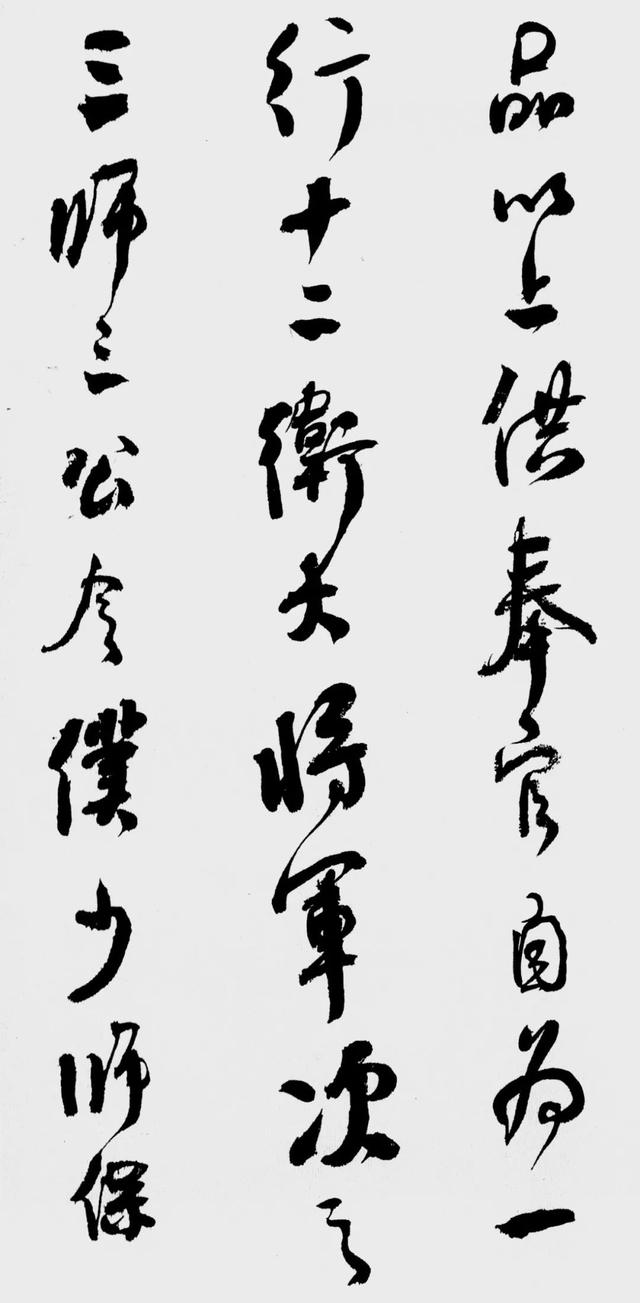 品以上供奉官自为一
行十二衛大将軍次之
三师三公令僕少师保